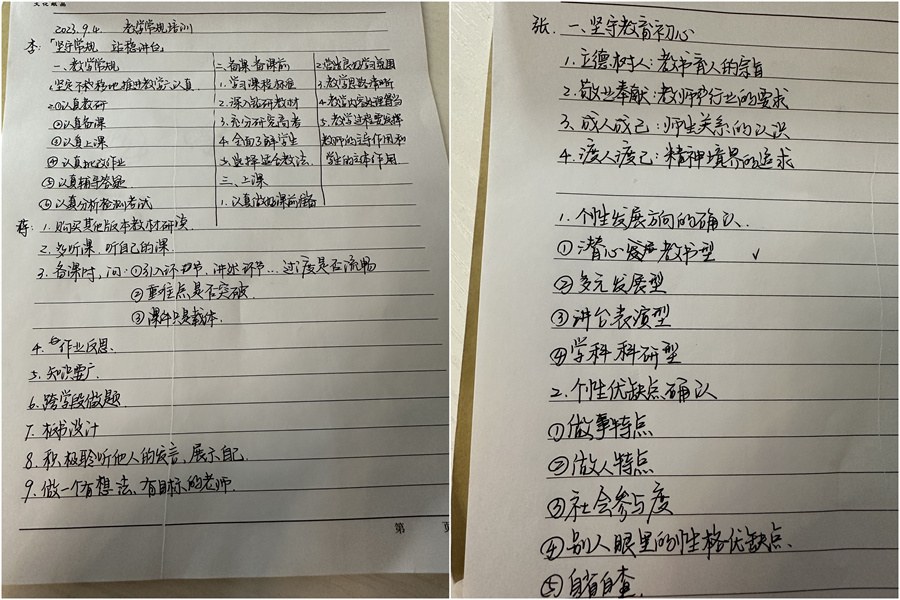 2023.9.4. 教学常规培训
李:「坚守常规 站稳讲台」
一、教学常规
1.坚定不移地推进教学六认真
2.①认真教研
②认真备课
③认真上课
④认真批改作业
⑤认真辅导答疑
⑥认真分析检测考试
二、备课 备课前
1.学习课程标准
2.深入钻研教材
3.充分研究高考
4.全面了解学生
5.选择适合教法
三、上课
1.认真做好课前准备
2.营造良好学习氛围
3.教学思路清晰
4.教学内容处理得当
5.教学过程要发挥
教师的主导作用和
学生的主体作用
蒋:1.购买其他版本教材研读
2.多听课.听自己的课.
3.备课时,问:①引入环节、讲述环节…过度是否流畅
②重难点是否突破.
③课件只是载体.
4.作业反思.
5.知识要广
6.跨学段做题.
7.板书设计
8.积极聆听他人的发言、展示自己.
9.做一个有想法、有目标的老师.
第 页
张.一、坚守教育初心
1.立德树人:教书育人的宗旨
2.敬业奉献:教师师行业的要求
3.成人成己:师生关系的认识
4.渡人渡己:精神境界的追求
1.个性发展方向的确认.
①潜心教书型 ✓
②多元发展型
③讲台表演型
④学科科研型
2.个性优缺点确认
①做事特点
②做人特点
③社会参与度
④别人眼里的性格优缺点、
⑤自省自查.